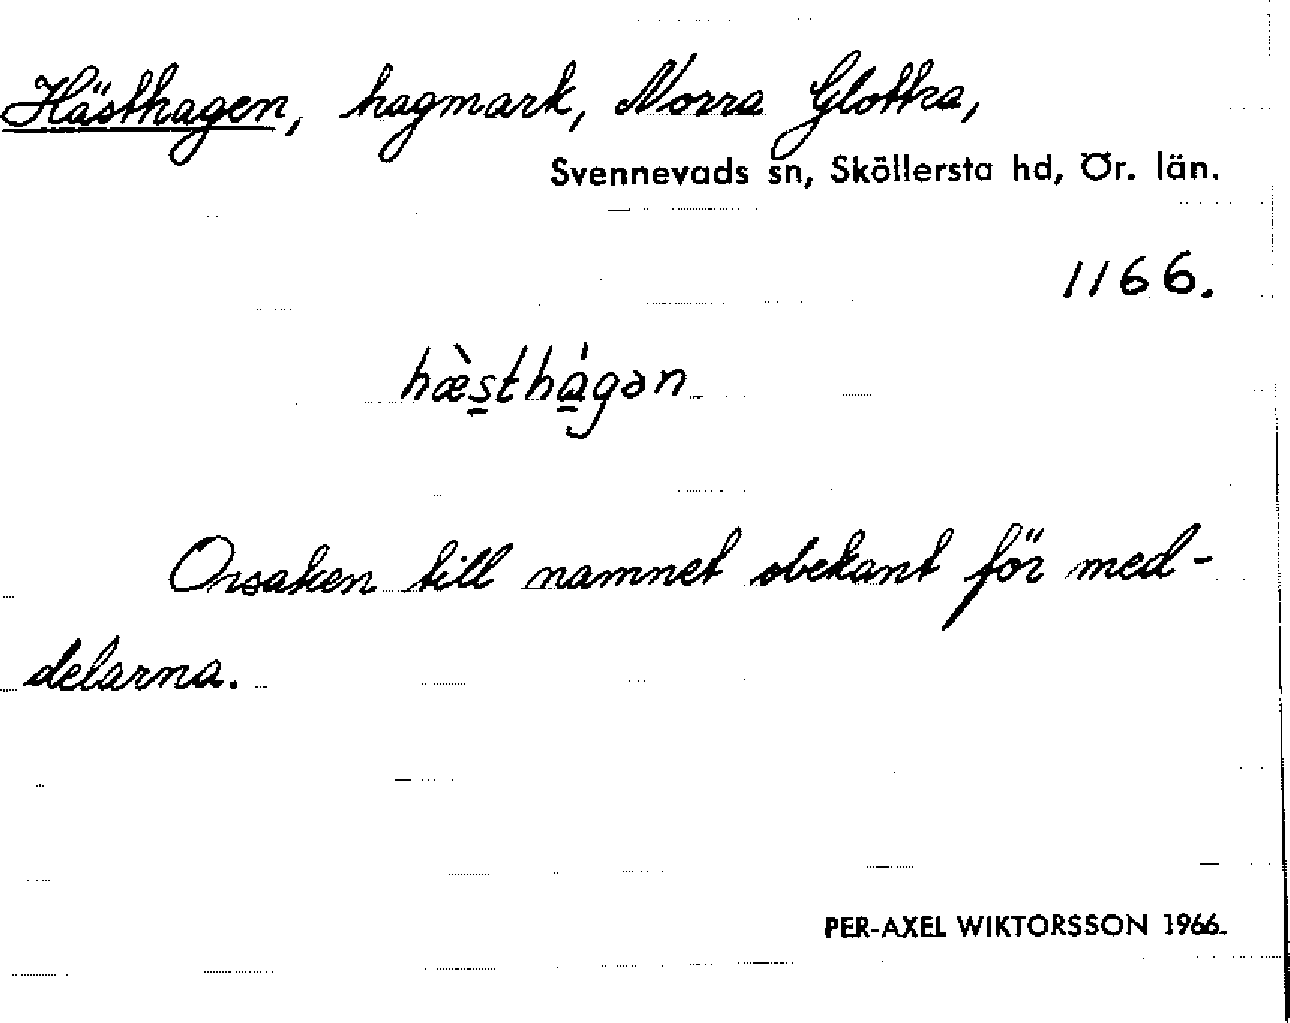 Hästhagen, hagmark, Norra Glottra,
Svennevads sn, Sköllersta hd, Ör. län.
1166.
hæ̀s̱thá̱gən
Orsaken till namnet obekant för med-
delarna.
PER-AXEL WIKTORSSON 1966.